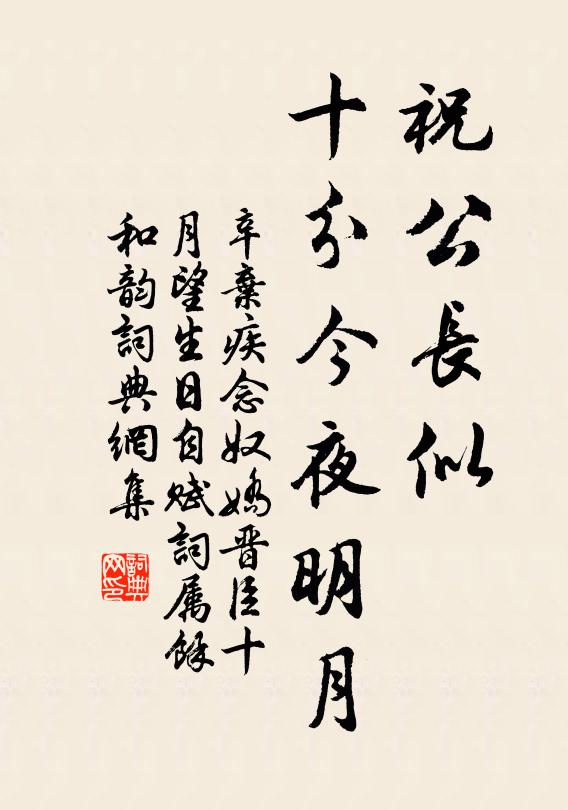 祝公長似
十分今夜明月
辛棄疾念奴嬌晋臣十
月望生日自賦詞属餘
和韵詞典網集
詞典
网印